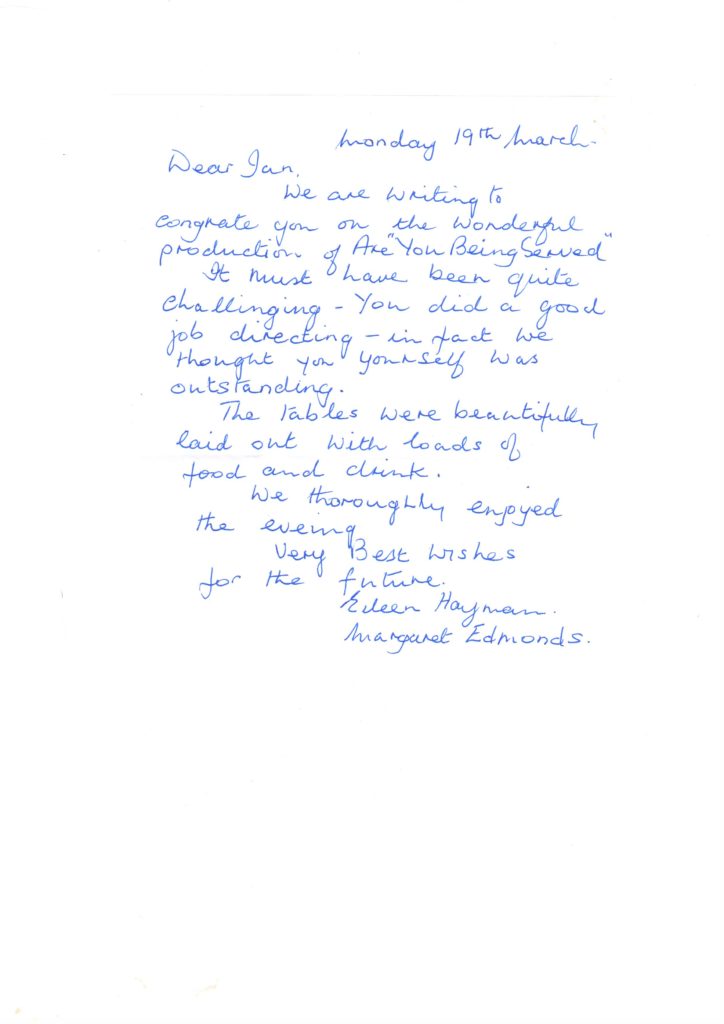 Monday 19th March.
Dear Jan,
We are writing to
congrate you on the wonderful
production of Are "You Being Served"
It must have been quite
challinging - You did a good
job directing - in fact we
thought you yourself was
outstanding.
The tables were beautifully
laid out with loads of
food and drink.
We thoroughly enjoyed
the eveing
Very Best Wishes
for the future.
Eileen Hayman.
Margaret Edmonds.